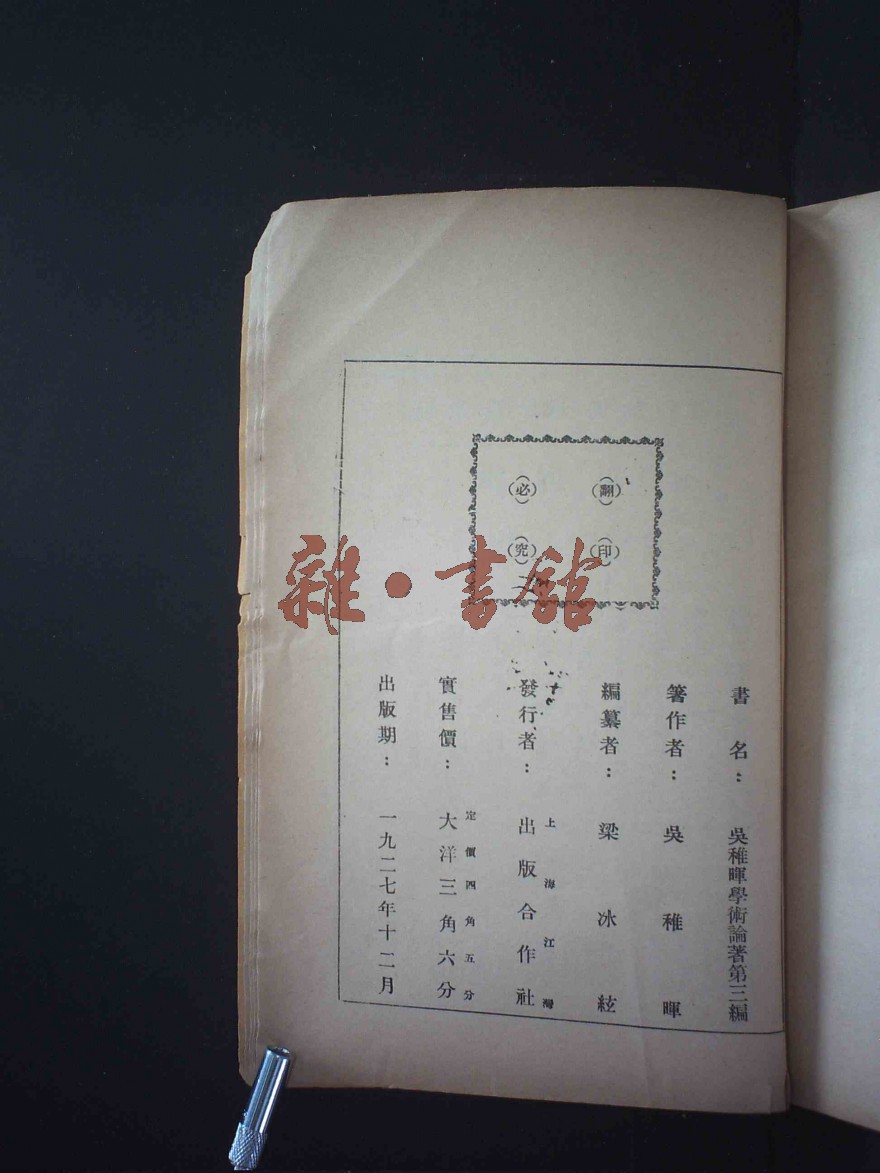 翻印
必究
書名：吳稚暉學術論著第三編
箸作者：吳稚暉
編纂者：梁冰絃
上海江灣
發行者：出版合作社
定價四角五分
實售價：大洋三角六分
出版期：一九二七年十二月
雜·書館